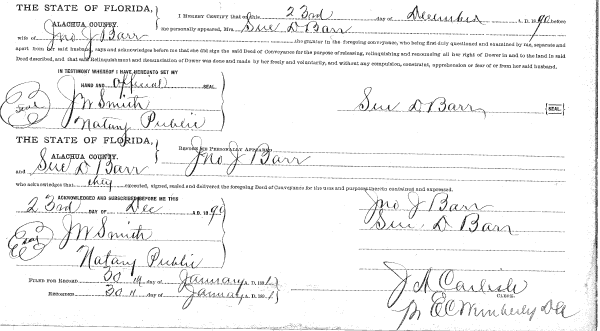 THE STATE OF FLORIDA,
ALACHUA COUNTY.
I HEREBY CERTIFY that on this 23rd day of December A. D. 1890 before
me personally appeared, Mrs. Sue D Barr
wife of Jno J Barr the grantor in the foregoing conveyance, who being first duly questioned and examined by me, separate and
apart from her said husband, says and acknowledges before me that she did sign the said Deed of Conveyance for the purpose of releasing, relinquishing and renouncing all her right of Dower in and to the land in said
Deed described, and that said Relinquishment and Renunciation of Dower was done and made by her freely and voluntarily, and without any compulsion, constraint, apprehension or fear of or from her said husband.
IN TESTIMONY WHEREOF I HAVE HEREUNTO SET MY
HAND AND Official SEAL.
Seal
J W Smith
Notary Public
Sue D Barr
SEAL
THE STATE OF FLORIDA,
ALACHUA COUNTY.
BEFORE ME PERSONALLY APPEARED Jno J Barr
and Sue D Barr
who acknowledges that they executed, signed, sealed and delivered the foregoing Deed of Conveyance for the uses and purposes therein contained and expressed.
ACKNOWLEDGED AND SUBSCRIBED BEFORE ME THIS
23rd DAY OF Dec A.D. 1890
Seal
J W Smith
Notary Public
Jno J Barr
Sue D Barr
FILED FOR RECORD 30 day of January A. D. 1891
RECORDED 30 day of January A. D. 1891
J A Carlisle
CLERK.
Pr E C Wimberly DC